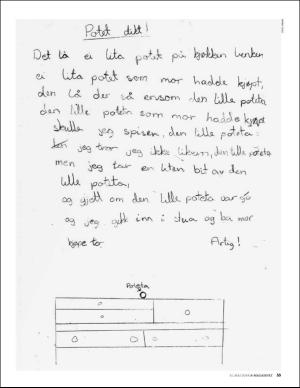 Potet dikt!
Det lå ei lita potet på kjøkken benken
ei lita potet som mor hadde kjøpt,
den lå der så ensom den lille poteta
den lille poteta som mor hadde kjøpt
skulle jeg spisen, den lille poteta
jeg tror jeg ikke liker'n, den lille poteta
men jeg tar en liten bit av den
lille poteta,
og gjett om den lille poteta var
og jeg gikk inn i stua og ba mor
kjøpe to.
Artig!
Poteta